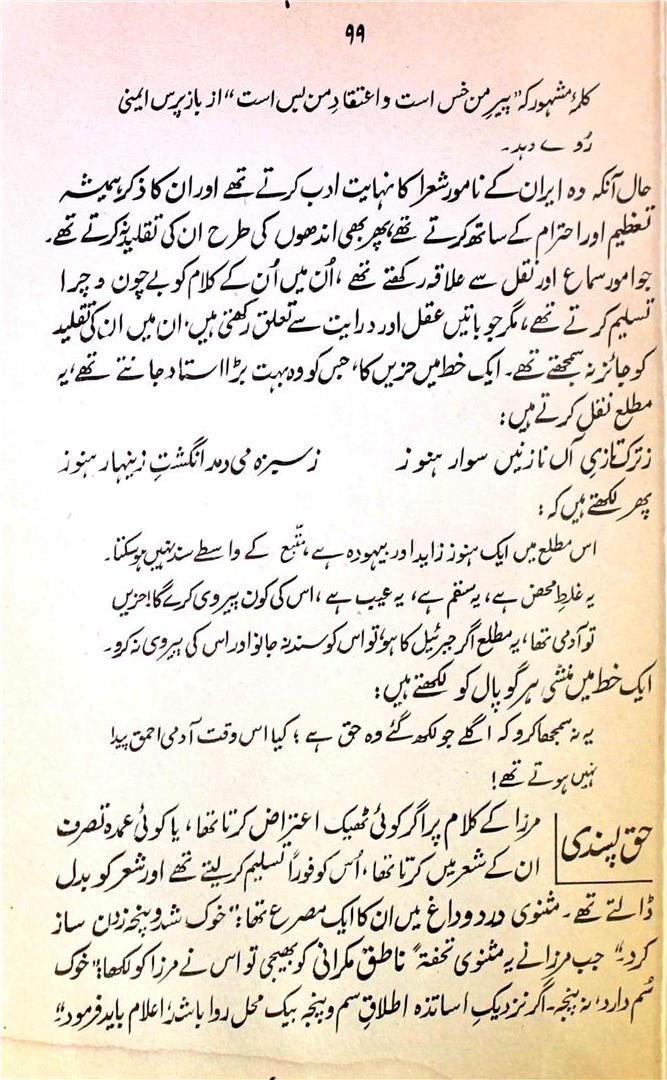 ۹۹
کلمۂ مشہور کہ "پیرِ من خس است و اعتقادِ من بس است" از باز پرس ایمنی
رُوے دہد۔
حال آنکہ وہ ایران کے نامور شعرا کا نہایت ادب کرتے تھے اور ان کا ذکر ہمیشہ
تعظیم اور احترام کے ساتھ کرتے تھے، پھر بھی اندھوں کی طرح ان کی تقلید نہ کرتے تھے۔
جو امور سماع اور نقل سے علاقہ رکھتے تھے، اُن میں اُن کے کلام کو بے چون و چرا
تسلیم کرتے تھے، مگر جو باتیں عقل اور درایت سے تعلق رکھتی ہیں، ان میں ان کی تقلید
کو جائز نہ سمجھتے تھے۔ ایک خط میں حزیں کا، جس کو وہ بہت بڑا استاد جانتے تھے، یہ
مطلع نقل کرتے ہیں:
ز ترکتازیِ آں نازنیں سوار ہنوز ز سبزہ می دمد انگشتِ زینہار ہنوز
پھر لکھتے ہیں کہ:
اس مطلع میں ایک ہنوز زاید اور بیہودہ ہے، متّبع کے واسطے سند نہیں ہو سکتا۔
یہ غلطِ محض ہے، یہ سقم ہے، یہ عیب ہے، اس کی کون پیروی کرے گا! حزیں
تو آدمی تھا، یہ مطلع اگر جبرئیل کا ہو، تو اس کو سند نہ جانو اور اس کی پیروی نہ کرو۔
ایک خط میں منشی ہرگوپال کو لکھتے ہیں:
یہ نہ سمجھا کرو کہ اگلے جو لکھ گئے وہ حق ہے؛ کیا اس وقت آدمی احمق پیدا
نہیں ہوتے تھے!
حق پسندی
مرزا کے کلام پر اگر کوئی ٹھیک اعتراض کرتا تھا، یا کوئی عمدہ تصرف
ان کے شعر میں کرتا تھا، اُس کو فوراً تسلیم کر لیتے تھے اور شعر کو بدل
ڈالتے تھے۔ مثنوی درد و داغ میں ان کا ایک مصرع تھا: "خوک شد و پنجہ زدن ساز
کرد۔" جب مرزا نے یہ مثنوی تحفۃً ناطق مکرانی کو بھیجی تو اس نے مرزا کو لکھا: "خوک
سُم دارد، نہ پنجہ۔ اگر نزدیکِ اساتذہ اطلاقِ سم و پنجہ بیک محل روا باشد، اعلام باید فرمود۔"